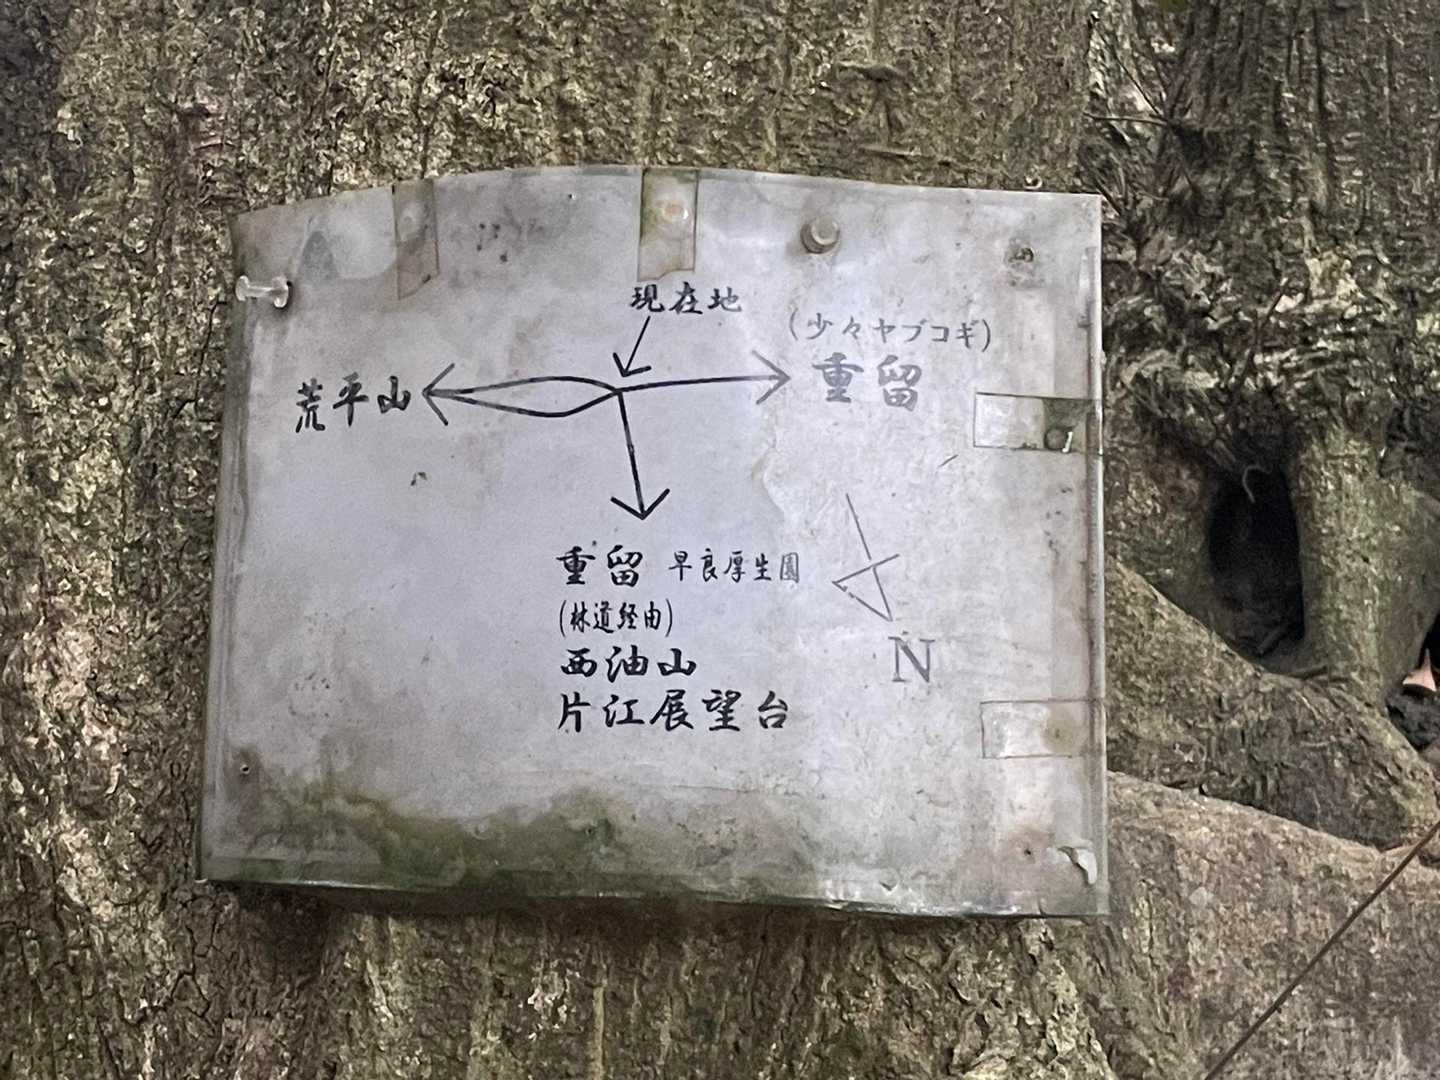 現在地
(少々ヤブコギ)
荒平山
重留
重留 早良厚生園
(林道経由)
西油山
片江展望台
N